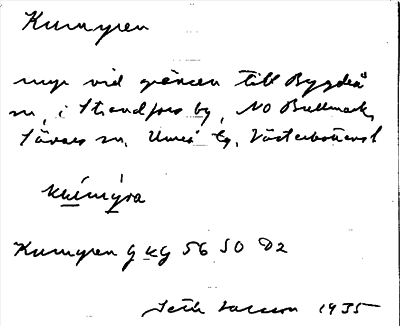 Kumyren
myr vid gränsen till Bygdeå
sn, i Strandfors by, NO Bullmark,
Sävars sn, Umeå tg, Västerbottens l
Kumyren G kg 56 SO D2
Seth Larsson 1935